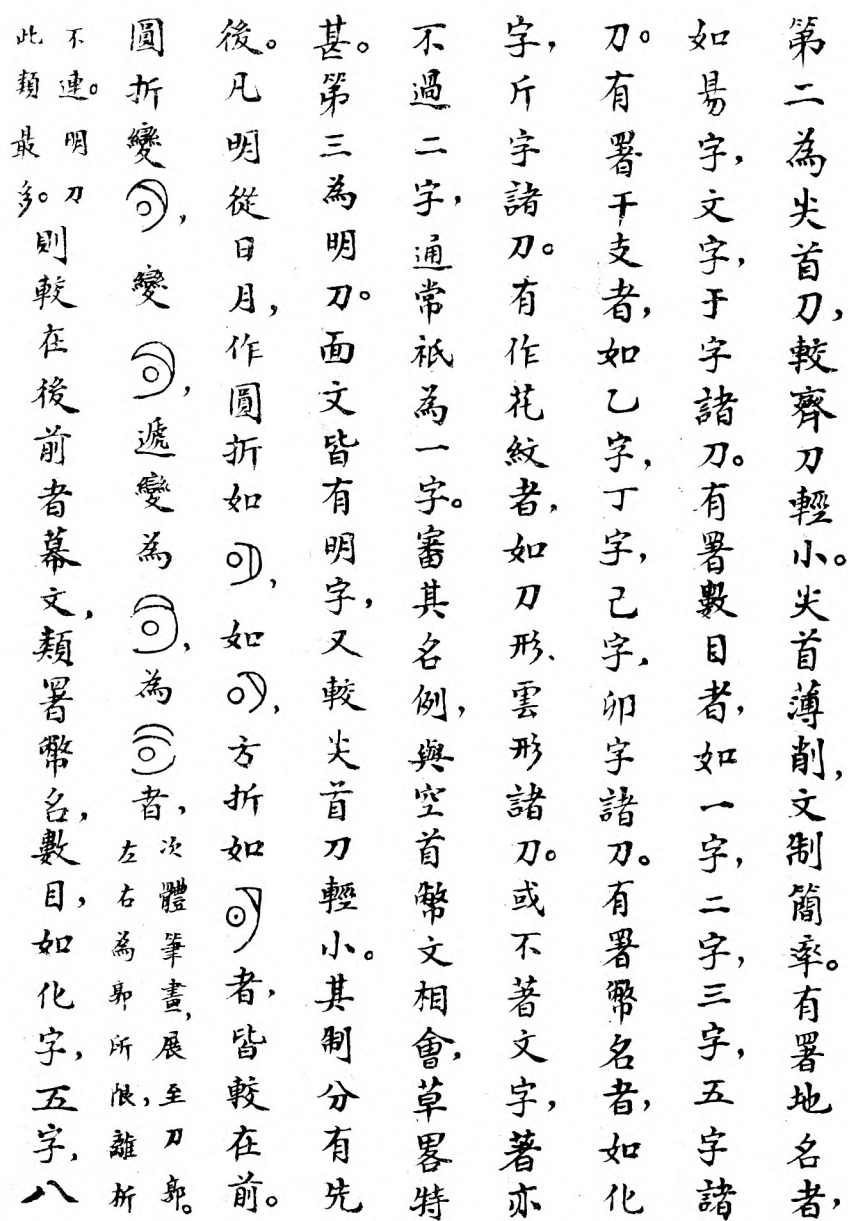 第二為尖首刀，較齊刀輕小。尖首薄削，文制簡率。有署地名者，
如昜字，文字，于字諸刀。有署數目者，如一字，二字，三字，五字諸
刀。有署干支者，如乙字，丁字，己字，卯字諸刀。有署幣名者，如化
字，斤字諸刀。有作花紋者，如刀形、雲形諸刀。或不著文字，著亦
不過二字，通常祇為一字。審其名例，與空首幣文相會，草畧特
甚。第三為明刀。面文皆有明字，又較尖首刀輕小。其制分有先
後。凡明從日月，作圓折如，如，方折如者，皆較在前。
圓折變，變，遞變為，為者，次體筆畫，展至刀郭。左右為郭所限，離析
不連。明刀此類最多。則較在後前者幕文，類署幣名，數目，如化字，五字，八